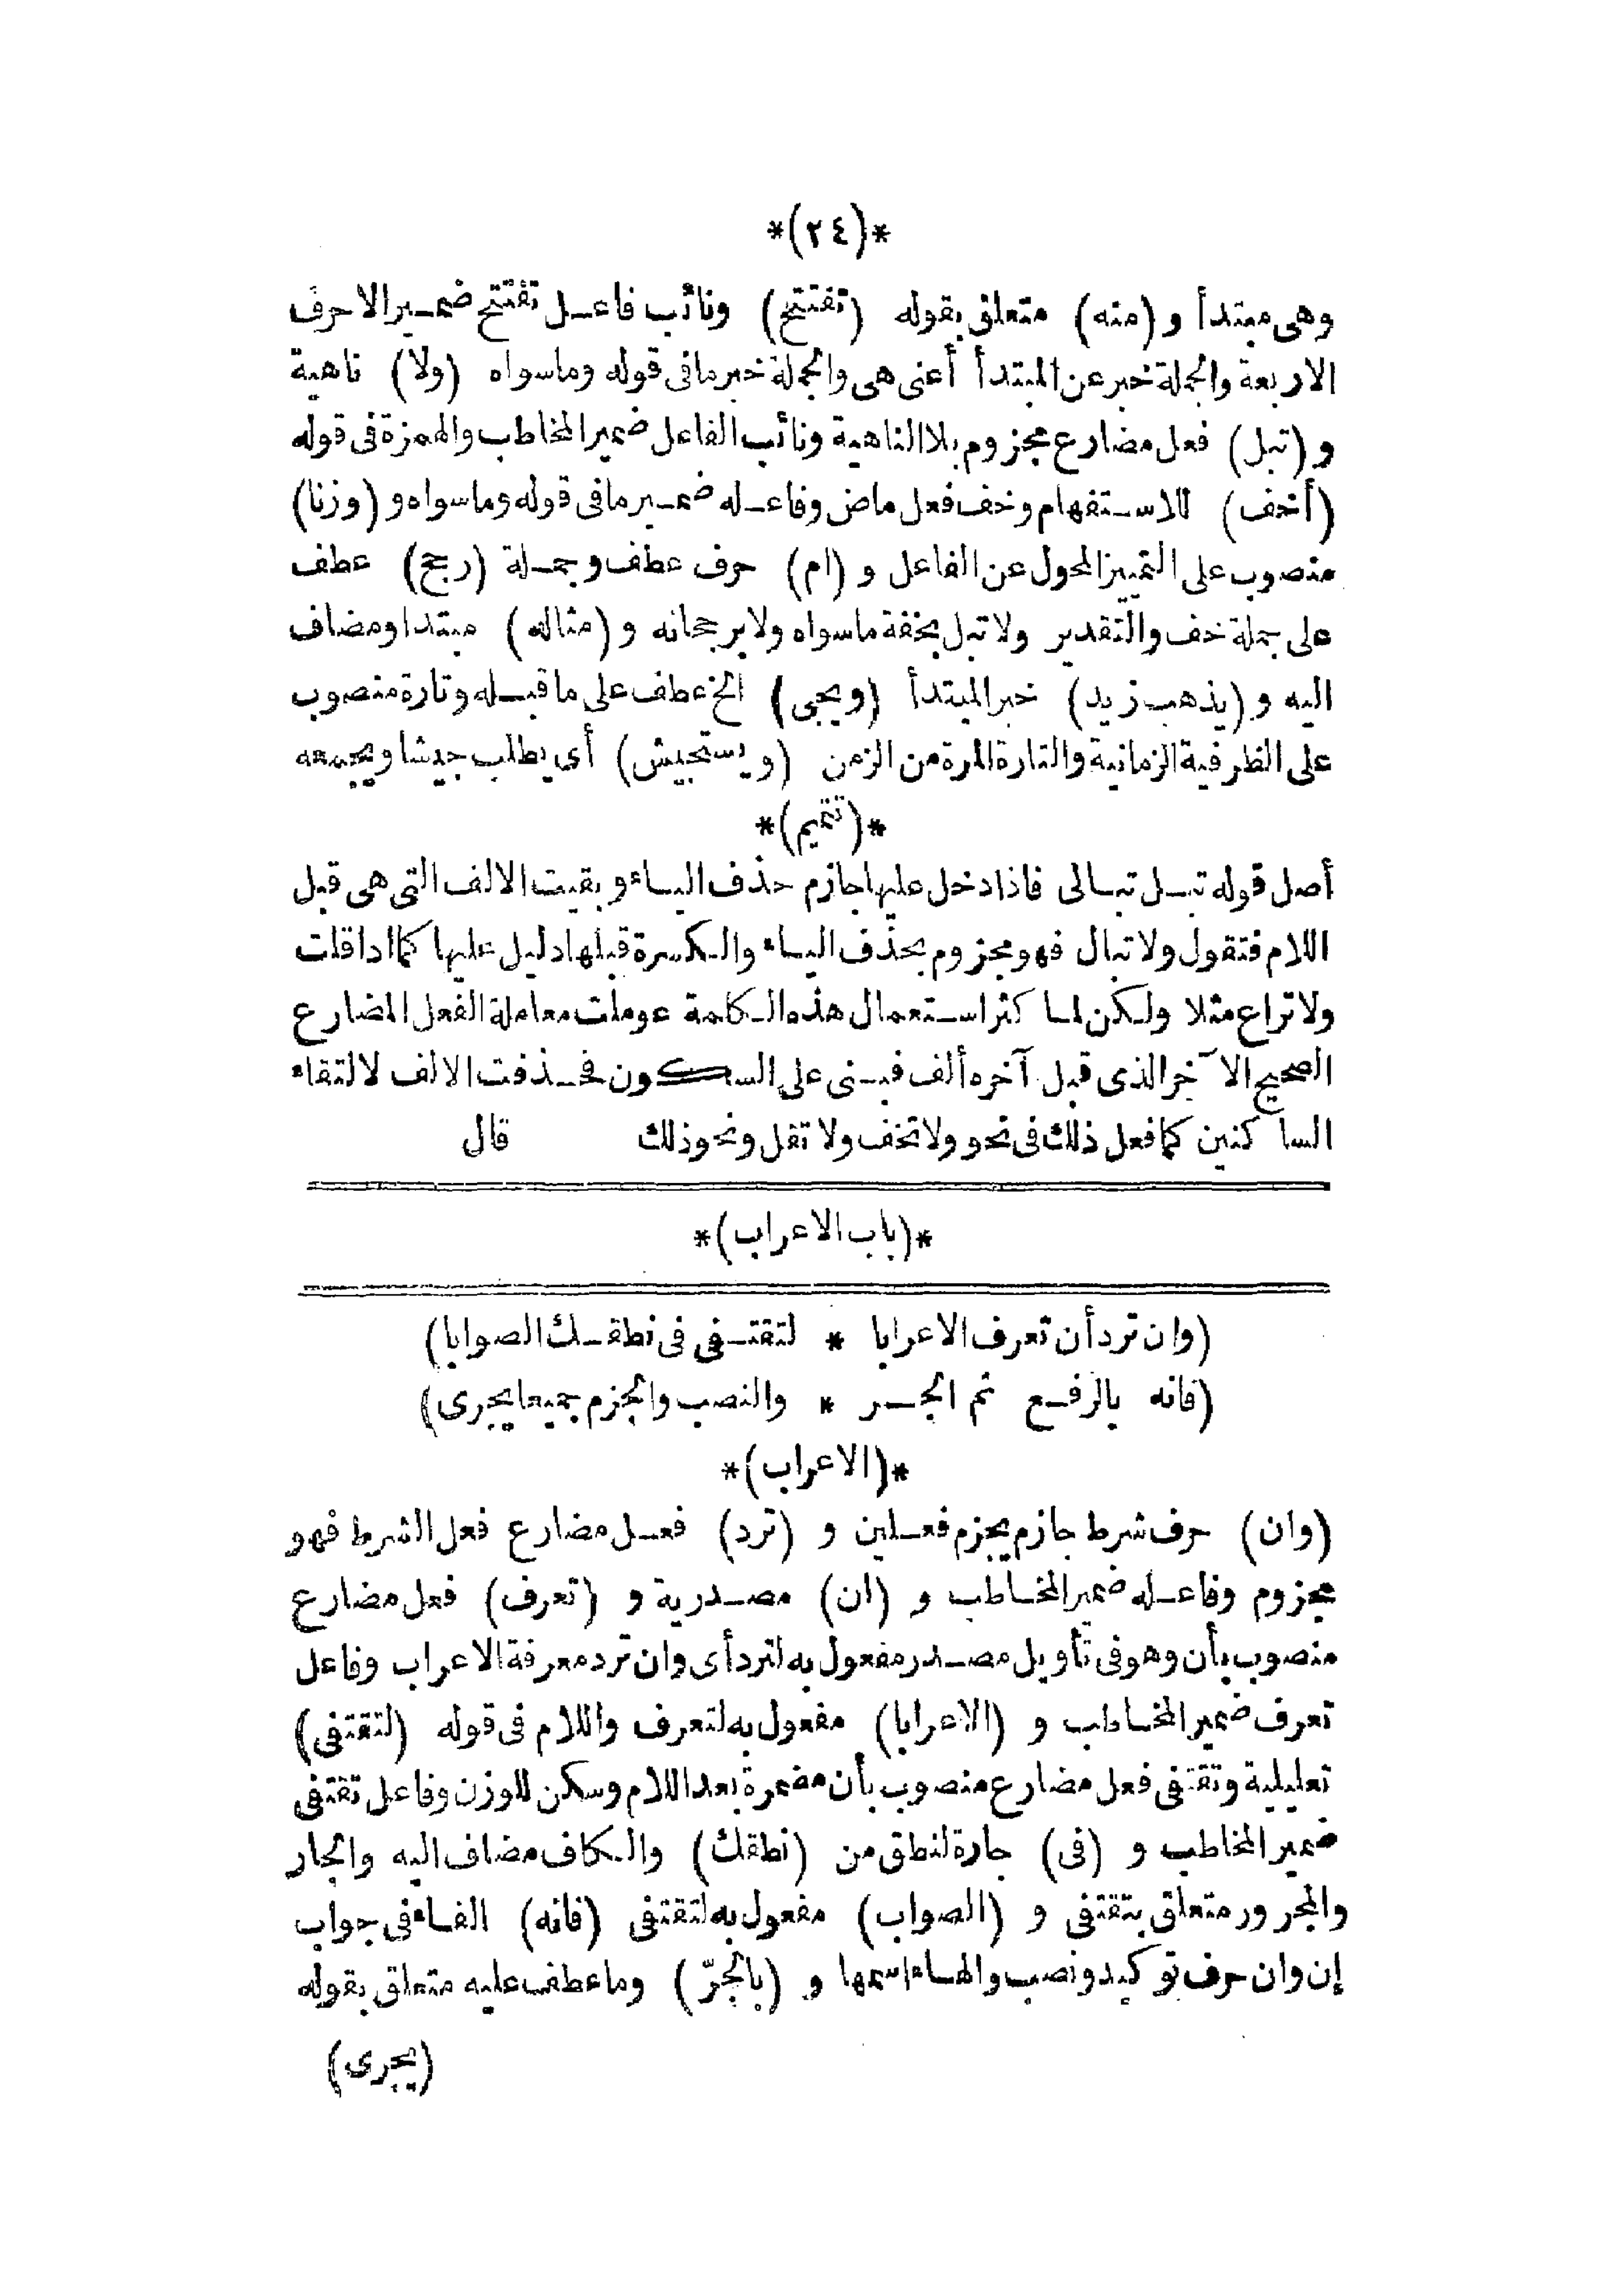 *(٢٤)*
وهى مبتدأ و (منه) متعلق بقوله (تفتتح) ونائب فاعل تفتتح ضمير الاحرف
الاربعة والجملة خبر عن المبتدأ أعنى هى والجملة خبر ما فى قوله وما سواه (ولا) ناهية
و (تبل) فعل مضارع مجزوم بلا الناهية ونائب الفاعل ضمير المخاطب والهمزة فى قوله
(أخف) للاستفهام وخف فعل ماض وفاعله ضمير ما فى قوله وما سواه و (وزنا)
منصوب على التمييز المحول عن الفاعل و (ام) حرف عطف وجملة (رجح) عطف
على جملة خف والتقدير ولا تبل بخفة ما سواه ولا برجحانه و (مثاله) مبتدا ومضاف
اليه و (يذهب زيد) خبر المبتدأ (ويجى) الخ عطف على ما قبله وتارة منصوب
على الظرفية الزمانية والتارة المرة من الزمن (ويستجيش) أى يطلب جيشا ويجمعه
*(تتميم)*
أصل قوله تبل تبالى فاذا دخل عليها جازم حذف الياء وبقيت الالف التى هى قبل
اللام فتقول ولا تبال فهو مجزوم بحذف الياء والكسرة قبلها دليل عليها كما اذا قلت
ولا تراع مثلا ولكن لما كثر استعمال هذه الكلمة عوملت معاملة الفعل المضارع
الصحيح الآخر الذى قبل آخره ألف فبنى على السكون فحذفت الالف لالتقاء
الساكنين كما فعل ذلك فى نحو ولا تخف ولا تقل ونحو ذلك قال
*(باب الاعراب)*
(وان ترد أن تعرف الاعرابا * لتقتفى فى نطقك الصوابا)
(فانه بالرفع ثم الجر * والنصب والجزم جميعا يجرى)
*(الاعراب)*
(وان) حرف شرط جازم يجزم فعلين و (ترد) فعل مضارع فعل الشرط فهو
مجزوم وفاعله ضمير المخاطب و (ان) مصدرية و (تعرف) فعل مضارع
منصوب بأن وهو فى تأويل مصدر مفعول به لترد أى وان ترد معرفة الاعراب وفاعل
تعرف ضمير المخاطب و (الاعرابا) مفعول به لتعرف واللام فى قوله (لتقتفى)
تعليلية وتقتفى فعل مضارع منصوب بأن مضمرة بعد اللام وسكن للوزن وفاعل تقتفى
ضمير المخاطب و (فى) جارة لنطق من (نطقك) والكاف مضاف اليه والجار
والمجرور متعلق بتقتفى و (الصواب) مفعول به لتقتفى (فانه) الفاء فى جواب
إن وان حرف توكيد ونصب والهاء اسمها و (بالجرّ) وما عطف عليه متعلق بقوله
(يجرى)